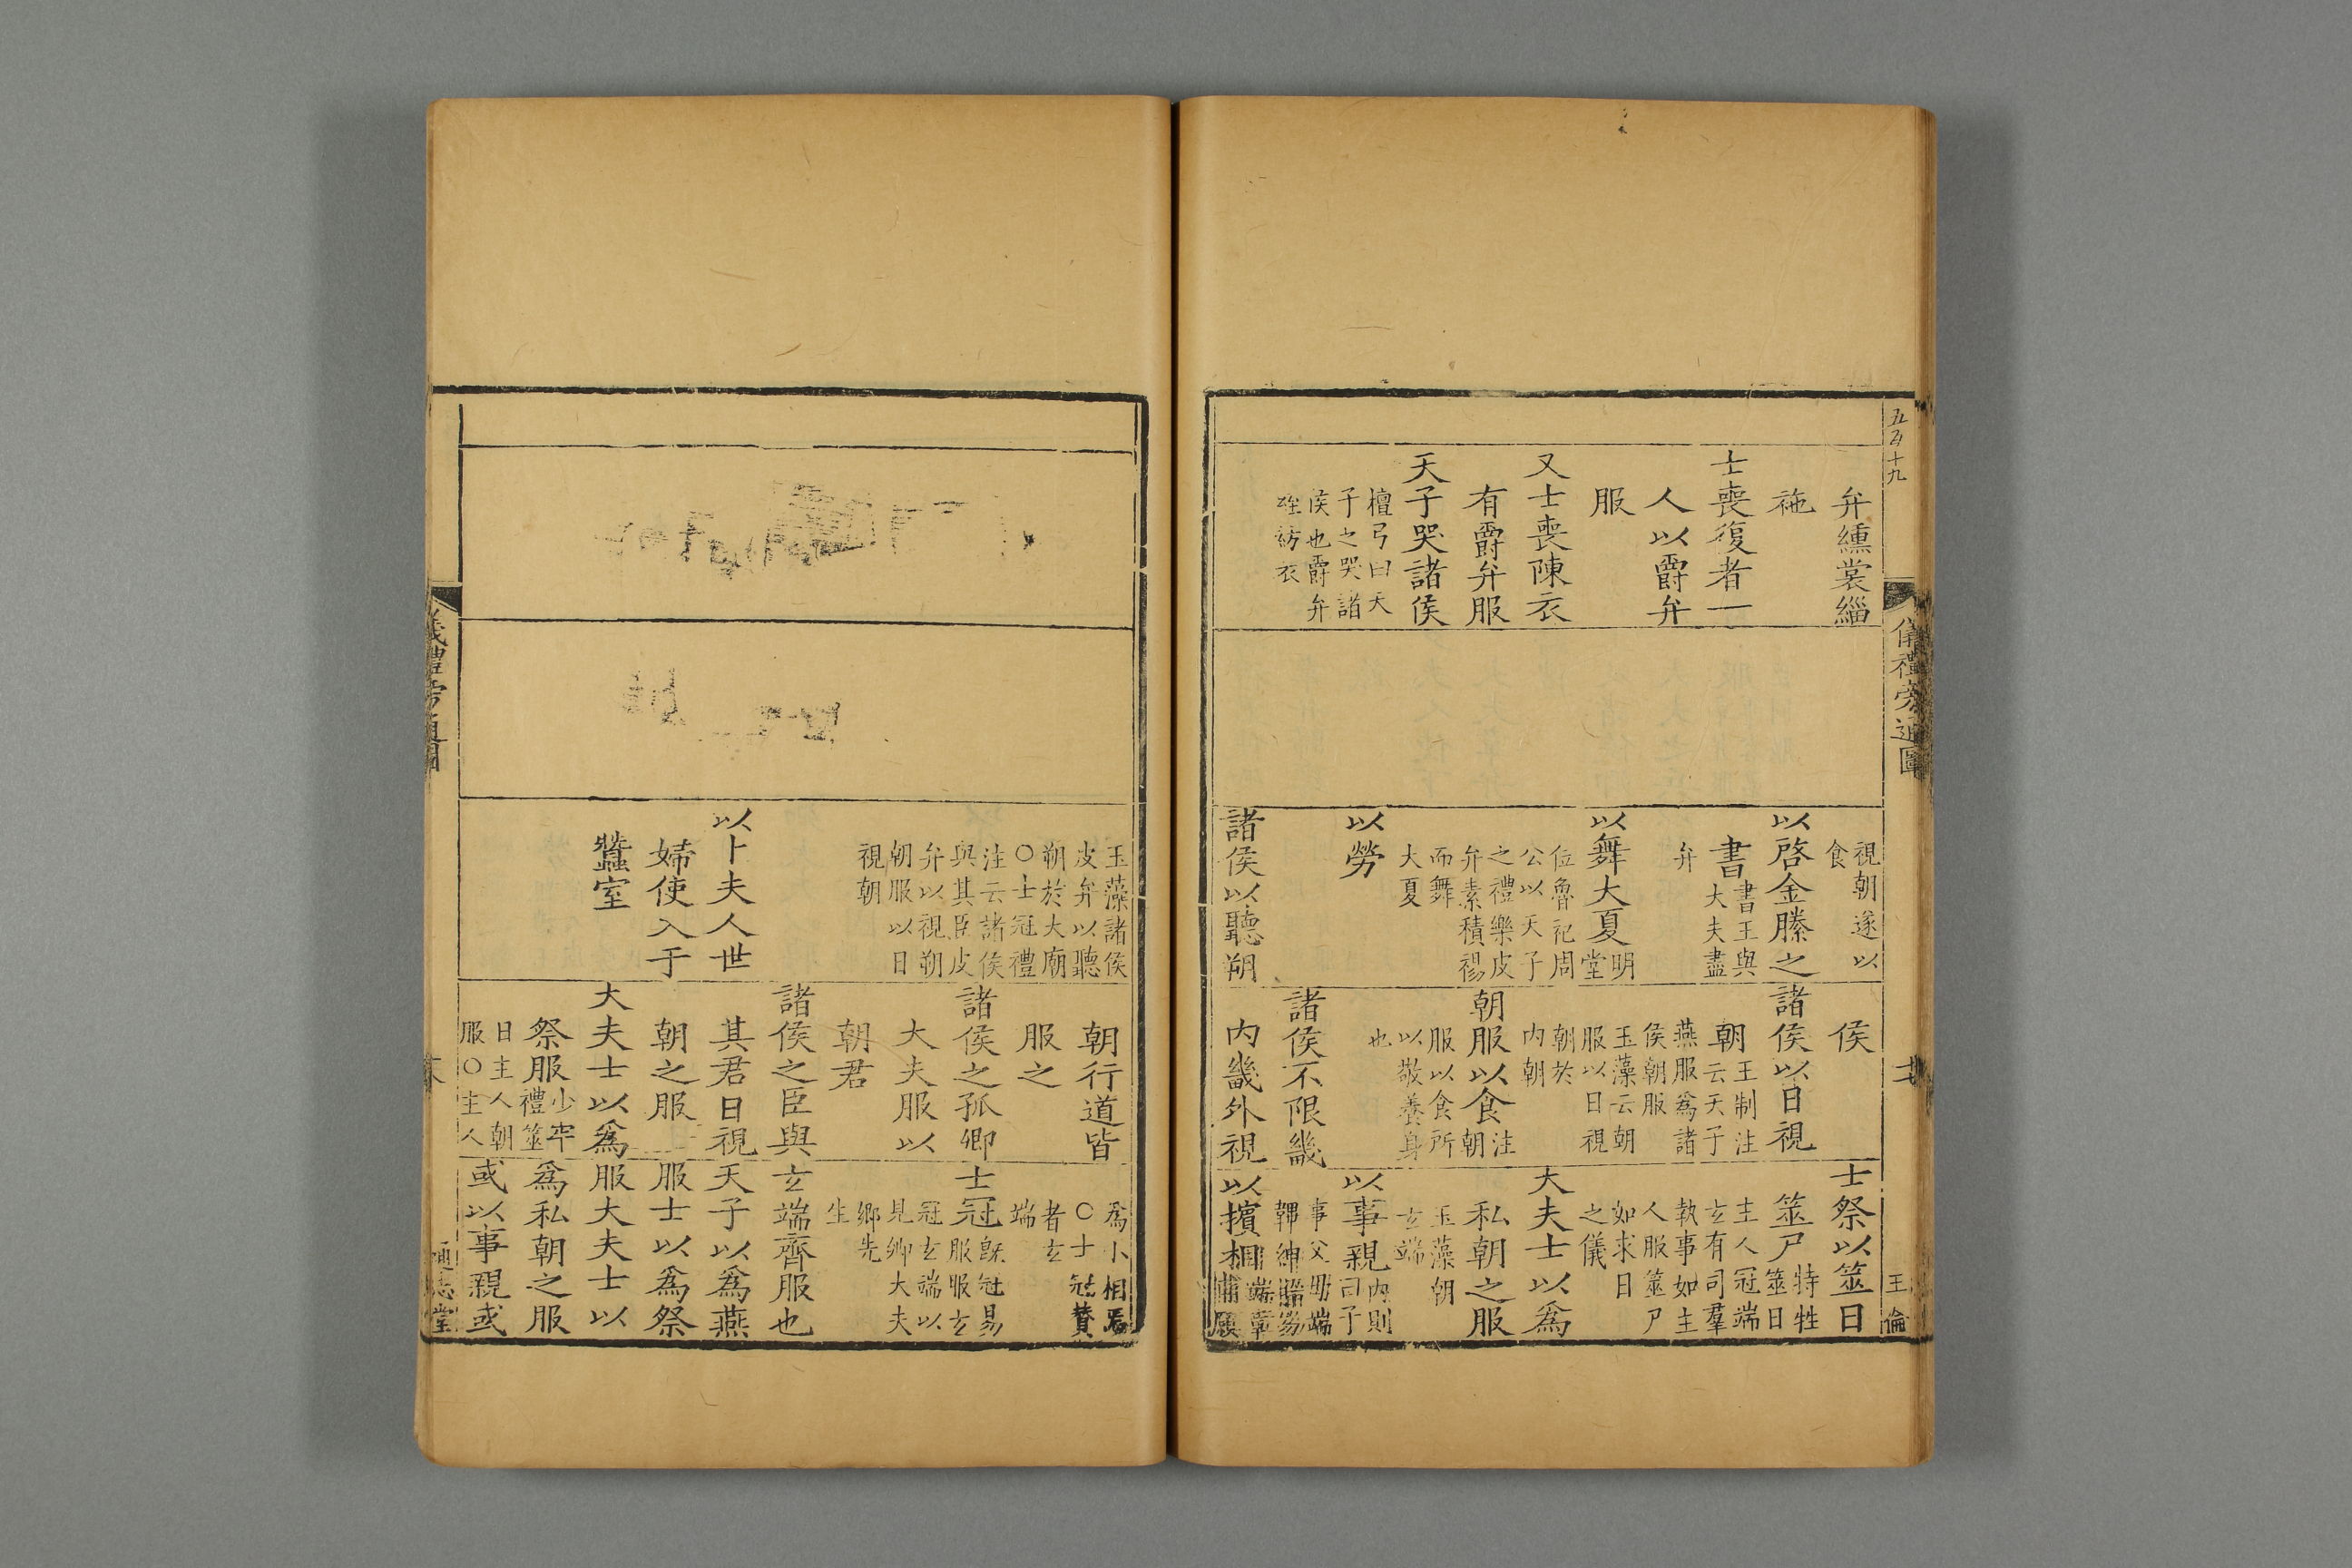 五百十九
儀禮旁通圖
王倫
弁纁裳緇
袘
士喪復者一
人以爵弁
服
又士喪陳衣
有爵弁服
天子哭諸侯
檀弓曰天
子之哭諸
侯也爵弁
絰紂衣
視朝遂以
食
以啓金縢之
書
書王與
大夫盡
弁
以舞大夏
明
堂
位魯祀周
公以天子
之禮樂皮
弁素積裼
而舞
大夏
以勞
諸侯以聽朔
侯
諸侯以日視
朝
王制注
云天子
燕服爲諸
侯朝服
玉藻云朝
服以日視
朝於
内朝
朝服以食
注
朝
服以食所
以敬養身
也
諸侯不限畿
内畿外視
士祭以筮日
筮尸
特牲
筮日
主人冠端
玄有司羣
執事如主
人服筮尸
如求日
之儀
大夫士以爲
私朝之服
玉藻朝
玄端
以事親
内則
子
事父母端
韠紳
以擯相
端章
甫願
玉藻諸侯
皮弁以聽
朔於大廟
○士冠禮
注云諸侯
與其臣皮
弁以視朔
朝服以日
視朝
以卜夫人世
婦使入于
蠶室
朝行道皆
服之
諸侯之孤卿
大夫服以
朝君
諸侯之臣與
其君日視
朝之服
大夫士以爲
祭服
少牢
禮筮
日主人朝
服○主人
爲小相焉
○士冠贊
者玄
端
士冠
既冠易
服服玄
冠玄端以
見卿大夫
鄉先
生
玄端齊服也
天子以爲燕
服士以爲祭
服大夫士以
爲私朝之服
或以事親或
儀禮旁通圖
通志堂